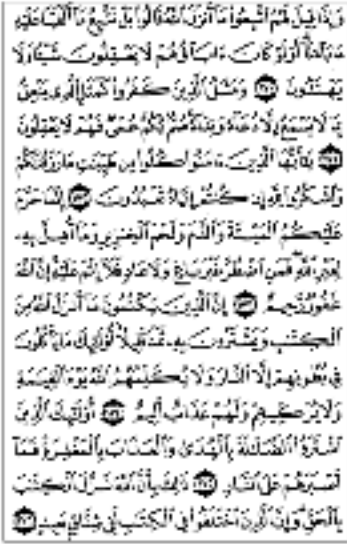 وَإِذَا قِيلَ لَهُمُ اتَّبِعُوا مَا أَنزَلَ اللَّهُ قَالُوا بَلْ نَتَّبِعُ مَا أَلْفَيْنَا عَلَيْهِ
ءَابَاءَنَا أَوَلَوْ كَانَ ءَابَاؤُهُمْ لَا يَعْقِلُونَ شَيْئًا وَلَا
يَهْتَدُونَ ١٧٠ وَمَثَلُ الَّذِينَ كَفَرُوا كَمَثَلِ الَّذِي يَنْعِقُ
بِمَا لَا يَسْمَعُ إِلَّا دُعَاءً وَنِدَاءً صُمٌّ بُكْمٌ عُمْيٌ فَهُمْ لَا يَعْقِلُونَ
١٧١ يَا أَيُّهَا الَّذِينَ ءَامَنُوا كُلُوا مِن طَيِّبَاتِ مَا رَزَقْنَاكُمْ
وَاشْكُرُوا لِلَّهِ إِن كُنتُمْ إِيَّاهُ تَعْبُدُونَ ١٧٢ إِنَّمَا حَرَّمَ
عَلَيْكُمُ الْمَيْتَةَ وَالدَّمَ وَلَحْمَ الْخِنزِيرِ وَمَا أُهِلَّ بِهِ
لِغَيْرِ اللَّهِ فَمَنِ اضْطُرَّ غَيْرَ بَاغٍ وَلَا عَادٍ فَلَا إِثْمَ عَلَيْهِ إِنَّ اللَّهَ
غَفُورٌ رَّحِيمٌ ١٧٣ إِنَّ الَّذِينَ يَكْتُمُونَ مَا أَنزَلَ اللَّهُ مِنَ
الْكِتَابِ وَيَشْتَرُونَ بِهِ ثَمَنًا قَلِيلًا أُولَٰئِكَ مَا يَأْكُلُونَ
فِي بُطُونِهِمْ إِلَّا النَّارَ وَلَا يُكَلِّمُهُمُ اللَّهُ يَوْمَ الْقِيَامَةِ
وَلَا يُزَكِّيهِمْ وَلَهُمْ عَذَابٌ أَلِيمٌ ١٧٤ أُولَٰئِكَ الَّذِينَ
اشْتَرَوُا الضَّلَالَةَ بِالْهُدَىٰ وَالْعَذَابَ بِالْمَغْفِرَةِ فَمَا
أَصْبَرَهُمْ عَلَى النَّارِ ١٧٥ ذَٰلِكَ بِأَنَّ اللَّهَ نَزَّلَ الْكِتَابَ
بِالْحَقِّ وَإِنَّ الَّذِينَ اخْتَلَفُوا فِي الْكِتَابِ لَفِي شِقَاقٍ بَعِيدٍ ١٧٦